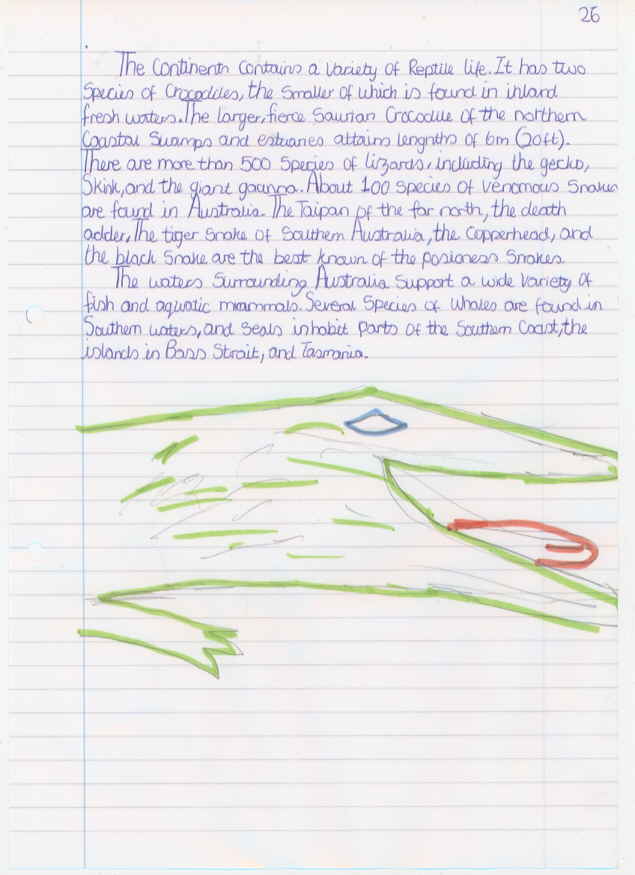 26
The Continents Contains a Variety of Reptile life. It has two
Species of Crocodiles, the Smaller of which is found in inland
fresh waters. The larger, fierce Saurian Crocodile of the northern
Coastal Swamps and estuaries attains lengnths of 6m (20ft).
There are more than 500 Species of lizards, including the gecko,
Skink, and the giant goanna. About 100 Species of Venomous Snakes
are found in Australia. The Taipan of the far north, the death
adder, The tiger Snake of Southern Australia, the Copperhead, and
the black Snake are the best known of the posioness Snakes.
The waters Surrounding Australia Support a wide Variety of
fish and aquatic mammals. Several Species of Whales are found in
Southern waters, and Seals inhabit Parts of the Southern Coast, the
islands in Bass Strait, and Tasmania.